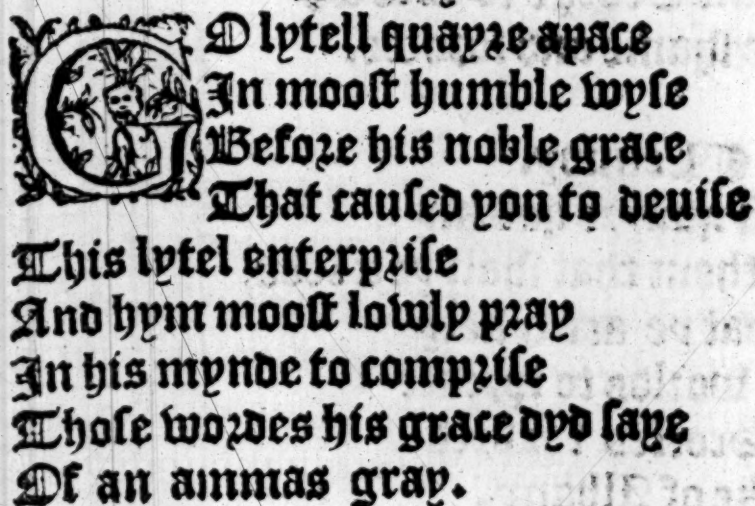 GO lytell quayre apace
In moost humble wyse
Before his noble grace
That caused you to deuise
This lytel enterprise
And hym moost lowly pray
In his mynde to comprise
Those wordes his grace dyd saye
Of an ammas gray.